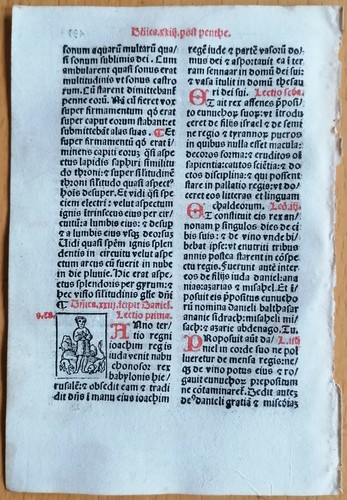 Dñica.xxiij. post penthe.
sonum aquarū multarū qua/
si sonum sublimis dei. Cum
ambularent quasi sonus erat
multitudinis vt sonus castro
rū. Cū starent dimittebantˉ
penne eorū. Nā cū fieret vox
super firmamentū qd̄ erat
super caput eorum stabant: et
submittebāt alas suas. Et
super firmamentū qd̄ erat i/
minens capiti eorū: q̄si aspe
ctus lapidis saphiri similitu
do throni: et super sil̓itudinē
throni sil̓itudo quasi aspectꝰ
hois desuper. Et vidi q̄si spe
ciem electri: velut aspectum
ignis ītrinsecus eius per cir/
cuitū: a lumbis eius: et desup
et a lumbis eius vsqꝫ deorsuꝫ
Uidi quasi spēm ignis splen
dentis in circuitu velut aspe
ctum arcus cū fuerit in nube
in die pluuie. Hic erat aspe/
ctus splendoris per gyrum: et
hec visio sil̓itudinis gl̓ie dn̄i
Dñica.xxiij. īcipit Daniel.
Lectio prima.
Anno ter/
tio regni
ioachim regis
iuda venit nabu
chonosor rex
babylonis hie/
rusalē: et obsedit eam et tradi
dit dn̄s ī manu eius ioachim
regē iude et partē vasorū do/
mus dei et asportauit ea ī ter
ram sennaar in domū dei sui: et
et vasa ītulit in domū thesau
ri dei sui. Lectio scd̄a.
Et ait rex assenes p̄posi/
to eunuchoꝝ suoꝝ: vt ītrodu
ceret de filijs israel et de semi
ne regio et tyrannoꝝ pueros
in quibus nulla esset macula:
decoros forma: et eruditos oī
sapientia: cautos sciētia: et do
ctos disciplina: et qui possent
stare in pallatio regis: vt do/
ceret eos litteras et linguam
chaldeorum.
Et constituit eis rex an/
nonam p̄ singulos dies de ci
bis suis: et de vino vnde bi/
bebat ipse: vt enutriti tribus
annis postea starent in cōspe
ctu regis. Fuerunt autē inter
eos de filijs iuda daniel: ana
nias: azarias et misahel. Et ī
posuit eis p̄positus eunucho
rū nomina danieli balthasar:
ananie sidrach: misaheli mi/
sach: et azarie abdenago. Tu.
Proposuit aūt da/
niel in corde suo ne pol
lueretur de mensa regis: ne/
qꝫ de vino potus eius: et ro/
gauit eunuchoꝝ prepositum
ne cōtaminaret̄. Dedit autem
deꝰ danieli gratiā et miscd̄iaꝫ